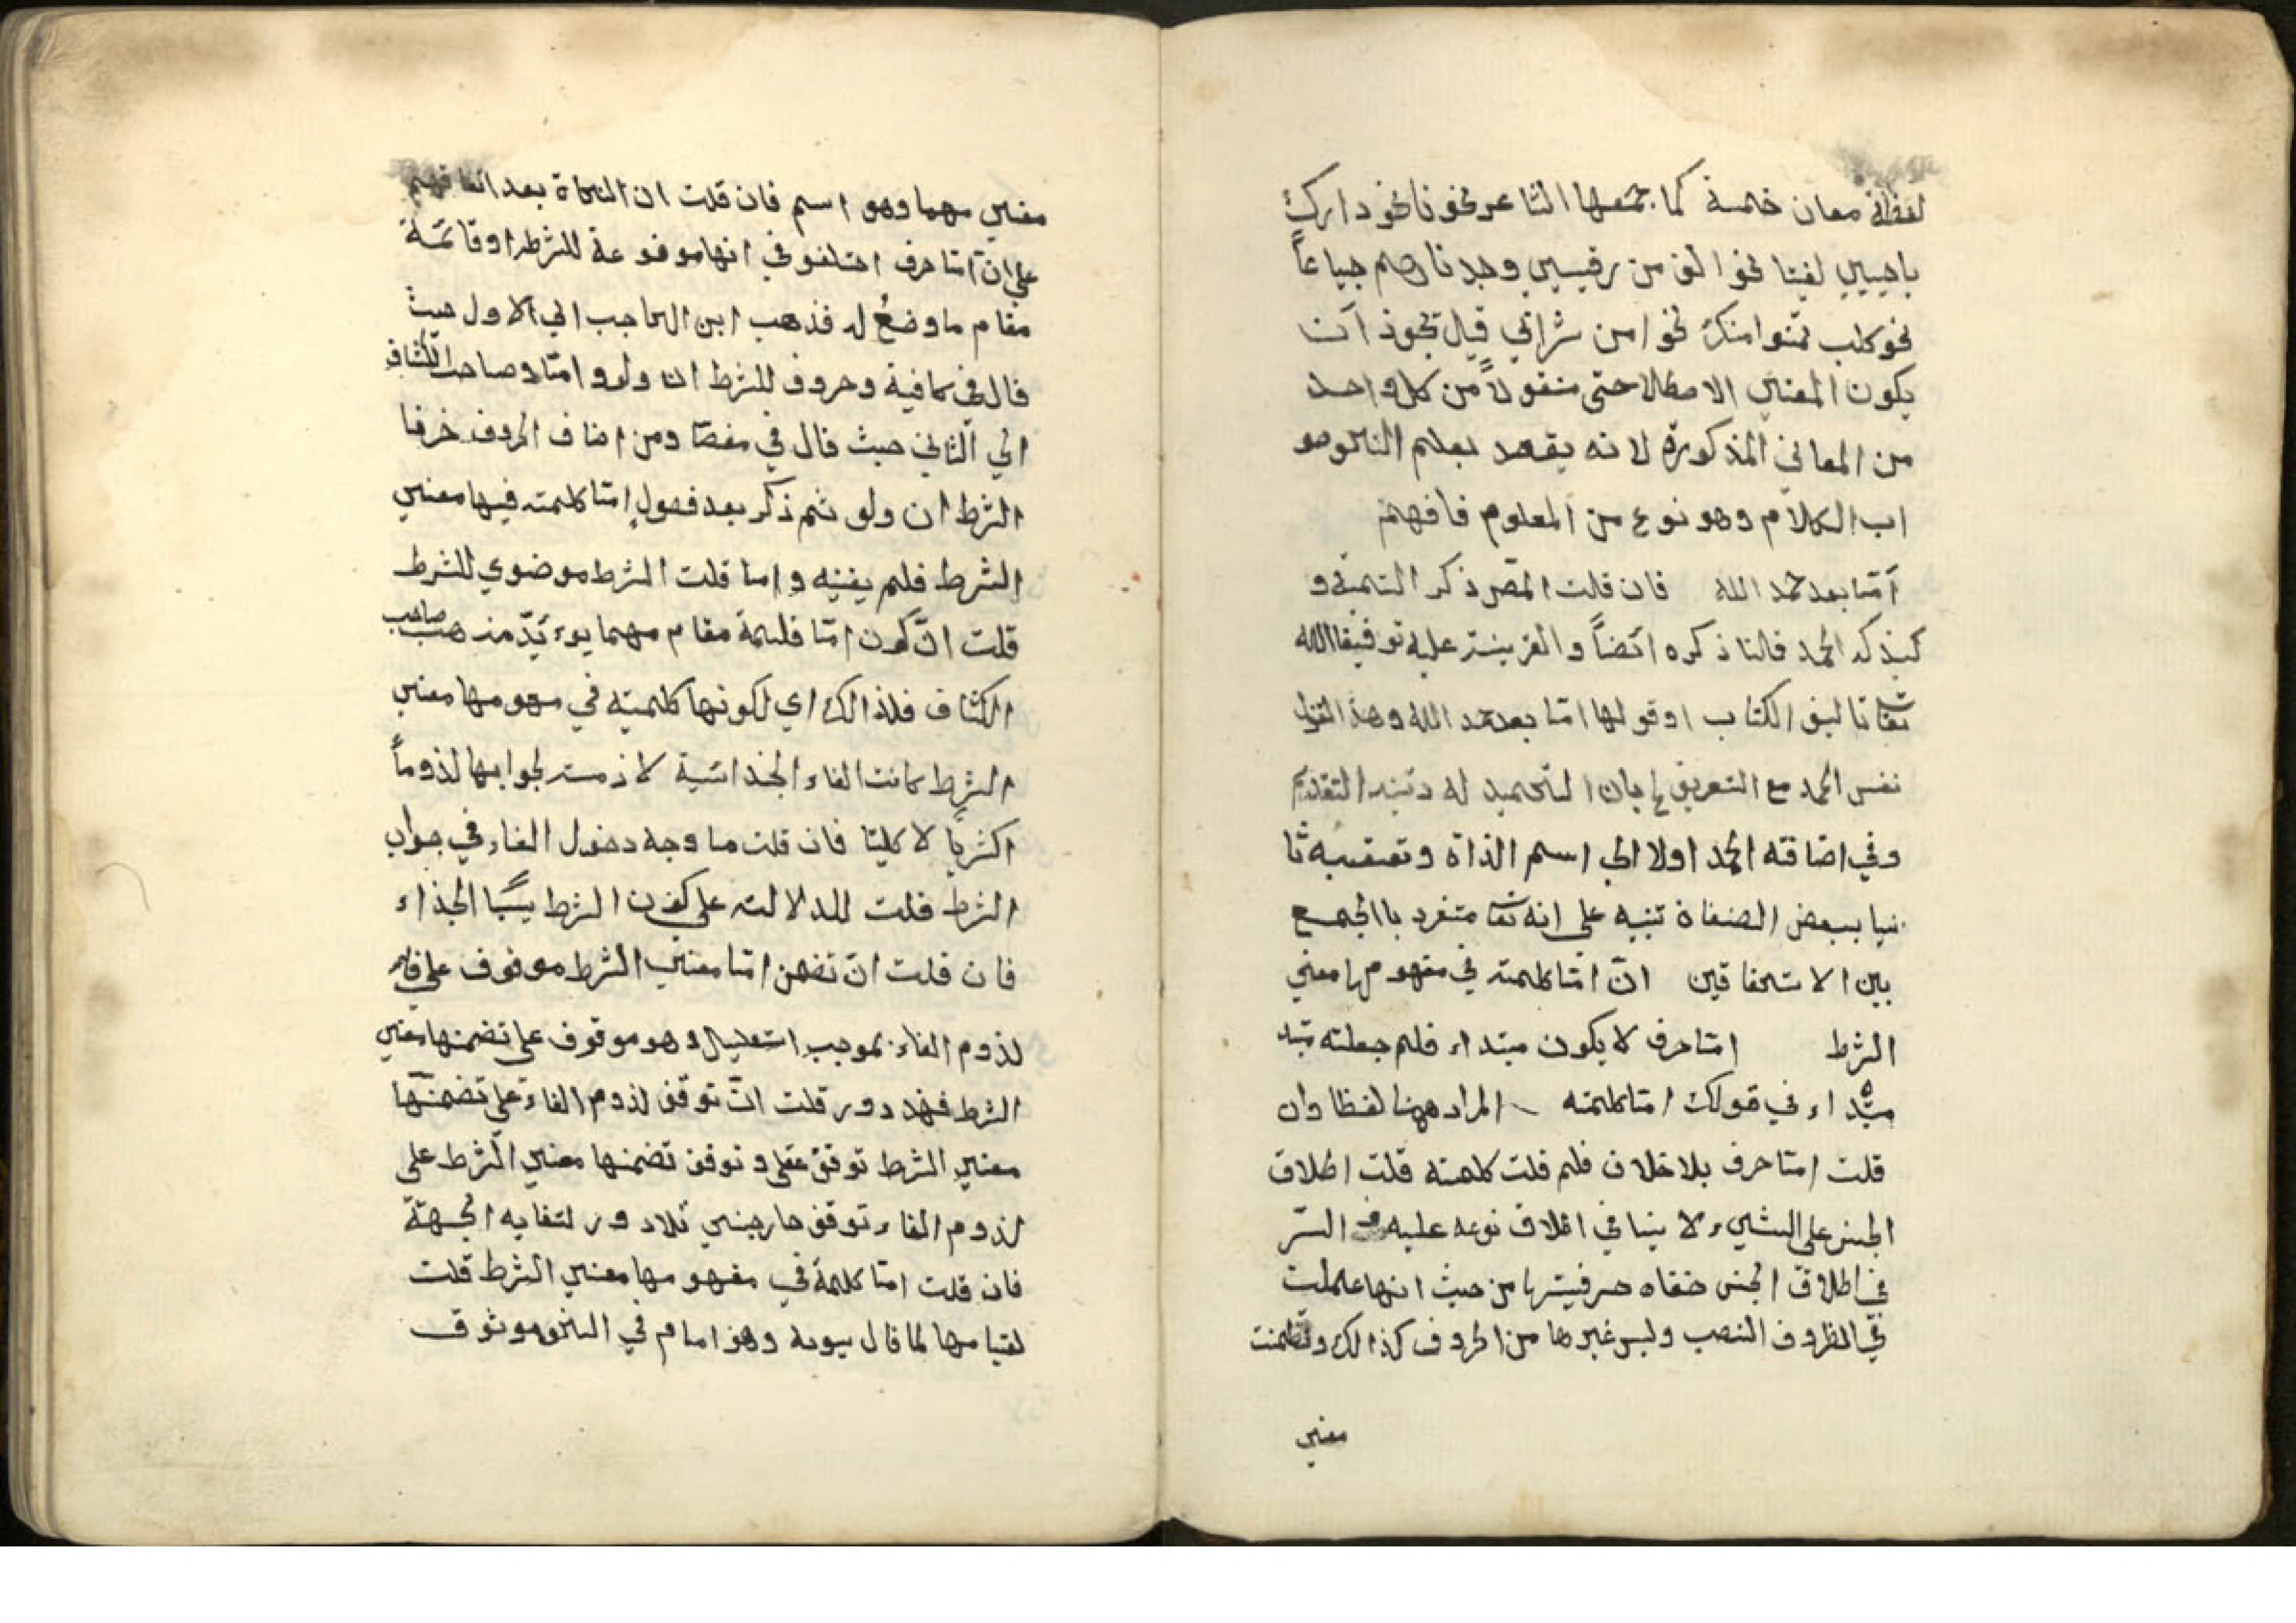 لفظة معان خمسة كما جمعها الشاعر نحونا نحو دارك
يا حبيبي لقينا نحو الف من رقيبي وجدناهم جياعاً
نحو كلب تمنوا منك نحوا من شرابي قيل يجوز ان
يكون المعنى الاصطلاحتى منقولاً من كل واحد
من المعاني المذكورة لانه يقصد بعلم النحو صو
اب الكلام وهو نوع من المعلوم فافهم
أمّا بعد حمد الله فان قلت المص ذكر التسمية و
الحمد قلنا ذكره ايضاً والقرينة عليه توفيق الله
تعا تاليف الكتاب او قولها امّا بعد حمد الله وهذا القول
نفس الحمد مع التعريف بان التحميد له التقديم
وفي اضافة الحمد اولا الى اسم الذاة وتعقيبه ثا
نيا ببعض الصفاة تنبيه على انه تعا متفرد باالجمع
بين الاستحقاقين انّ امّا كلمته في مفهومها معنى
الشرط امّا حرف لا يكون مبتداء فلم جعلته مبتد
مبتداء في قولك امّا كلمته المراد ههنا لفظا وان
قلت امّا حرف بلا خلاف فلم قلت كلمته قلت اطلاق
الجنس على الشيء لا ينافي اطلاق نوعه عليه السّر
في اطلاق الجنس خفاه حرفيتها من حيث انها عملت
في الظروف النصب وليس غيرها من الحروف كذالك وتضمنت
معنى
معنى مهما وهو اسم فان قلت ان النحاة بعد اتفاقهم
على انّ امّا حرف اختلفو في انها موضوعة للشرط او قائمة
مقام ما وضع له فذهب ابن الحاجب الى الاول حيث
قال في كافية وحروف للشرط ان ولو وامّا وصاحب الكشاف
الى الثاني حيث قال في مفصّا ومن اصناف الحروف حرفا
الشرط ان ولو ثم ذكر بعد فصول امّا كلمته فيها معنى
الشرط فلم وامّا قلت الشرط موضوي للشرط
قلت انّ كون امّا قائمة مقام مهما يوءيّد مذهب صاحب
الكشاف فلذالك اي لكونها كلمته في مفهومها معنى
الشرط كانت الفاء الجذائية لاذمته لجوابها لذوماً
اكثرياً لا كليّا فان قلت ما وجه دخول الفاء في جواب
الشرط قلت للدلالته على كون الشرط سبباً الجذاء
فان قلت انّ تضمن امّا معنى الشرط موقوف على
لذوم الفاء بموجب استعمال وهو موقوف على تضمنها معنى
الشرط فهذ دور قلت انّ توقف لذوم الفاء على تضمنها
معنى الشرط توقف عقلي وتوقف تضمنها معنى الشرط على
لذوم الفاء توقف خارجي فلا دور لتغايه الجهة
فان قلت امّا كلمة في مفهومها معنى الشرط قلت
لقيامها لما قال سيويه وهو امام في النحو موثوق